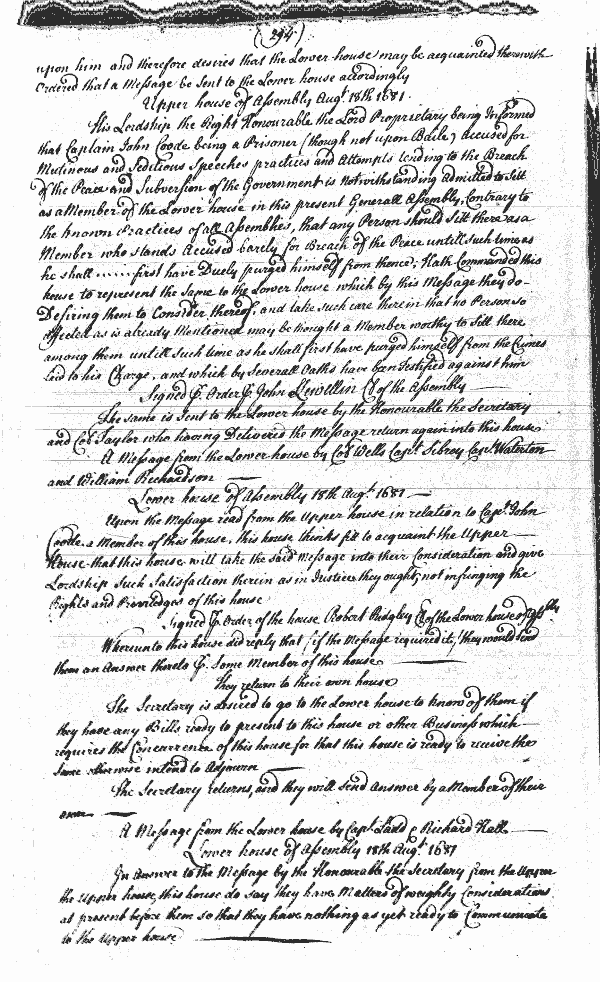 (294)
upon him and therefore desires that the Lower house may be acquainted therewith
Ordered that a Message be Sent to the Lower house accordingly
Upper house of Assembly Augt. 18th 1681.
His Lordship the Right Honourable the Lord Proprietary being Informed
that Captain John Coode being a Prisoner (though not upon Baile) accused for
Mutinous and Seditious Speeches practices and Attempts tending to the Breach
of the Peace and Subversion of the Government is Notwithstanding admitted to Sitt
as a Member of the Lower house in this present Generall Assembly, Contrary to
the known Practices of all Assemblies, that any Person should Sitt there as a
Member who stands Accused barely for Breach of the Peace untill such time as
he shall ...... first have Duely purged himself from thence; Hath Commanded this
house to represent the Same to the Lower house which by this Message they do
Desiring them to Consider thereof, and take such care therein that no Person so
affected as is already Mentioned may be thought a Member worthy to Sitt there
among them untill Such time as he shall first have purged himself from the Crimes
laid to his Charge, and which by Severall Oaths have been Testified against him
Signed P. Order P. John Llewellin Cl of the Assembly
The same is Sent to the Lower house by the Honourable the Secretary
and Col Taylor who having Delivered the Message return again into this house
A Message from the Lower house by Col Wells Capt. Sibrey Capt. Waterton
and William Richardson
Lower house of Assembly 18th Augt. 1681
Upon the Message read from the Upper house in relation to Capt. John
Coode, a Member of this house, this house thinks fit to acquaint the Upper
House that this house will take the said Message into their Consideration and give
Lordship Such Satisfaction therein as in Justice they ought, not infringing the
Rights and Priviledges of this house
Signed P Order of the house Robert Ridgley Cl of the Lower house of Assbly
Whereunto this house did reply that (if the Message required it,) they would send
them an Answer thereto P. Some Member of this house
They return to their own house
The Secretary is desired to go to the Lower house to know of them if
they have any Bills ready to present to this house or other Business which
requires the Concurrence of this house for that this house is ready to receive the
Same otherwise intend to Adjourn
The Secretary returns, and they will send Answer by a Member of their
own
A Message from the Lower house by Capt Ladd & Richard Hall
Lower house of Assembly 18th Augt. 1681
In Answer to the Message by the Honourable the Secretary from the Upper
the Upper house, this house do say they have Matters of weighty Considerations
at present before them so that they have nothing as yet ready to Communicate
to the Upper house